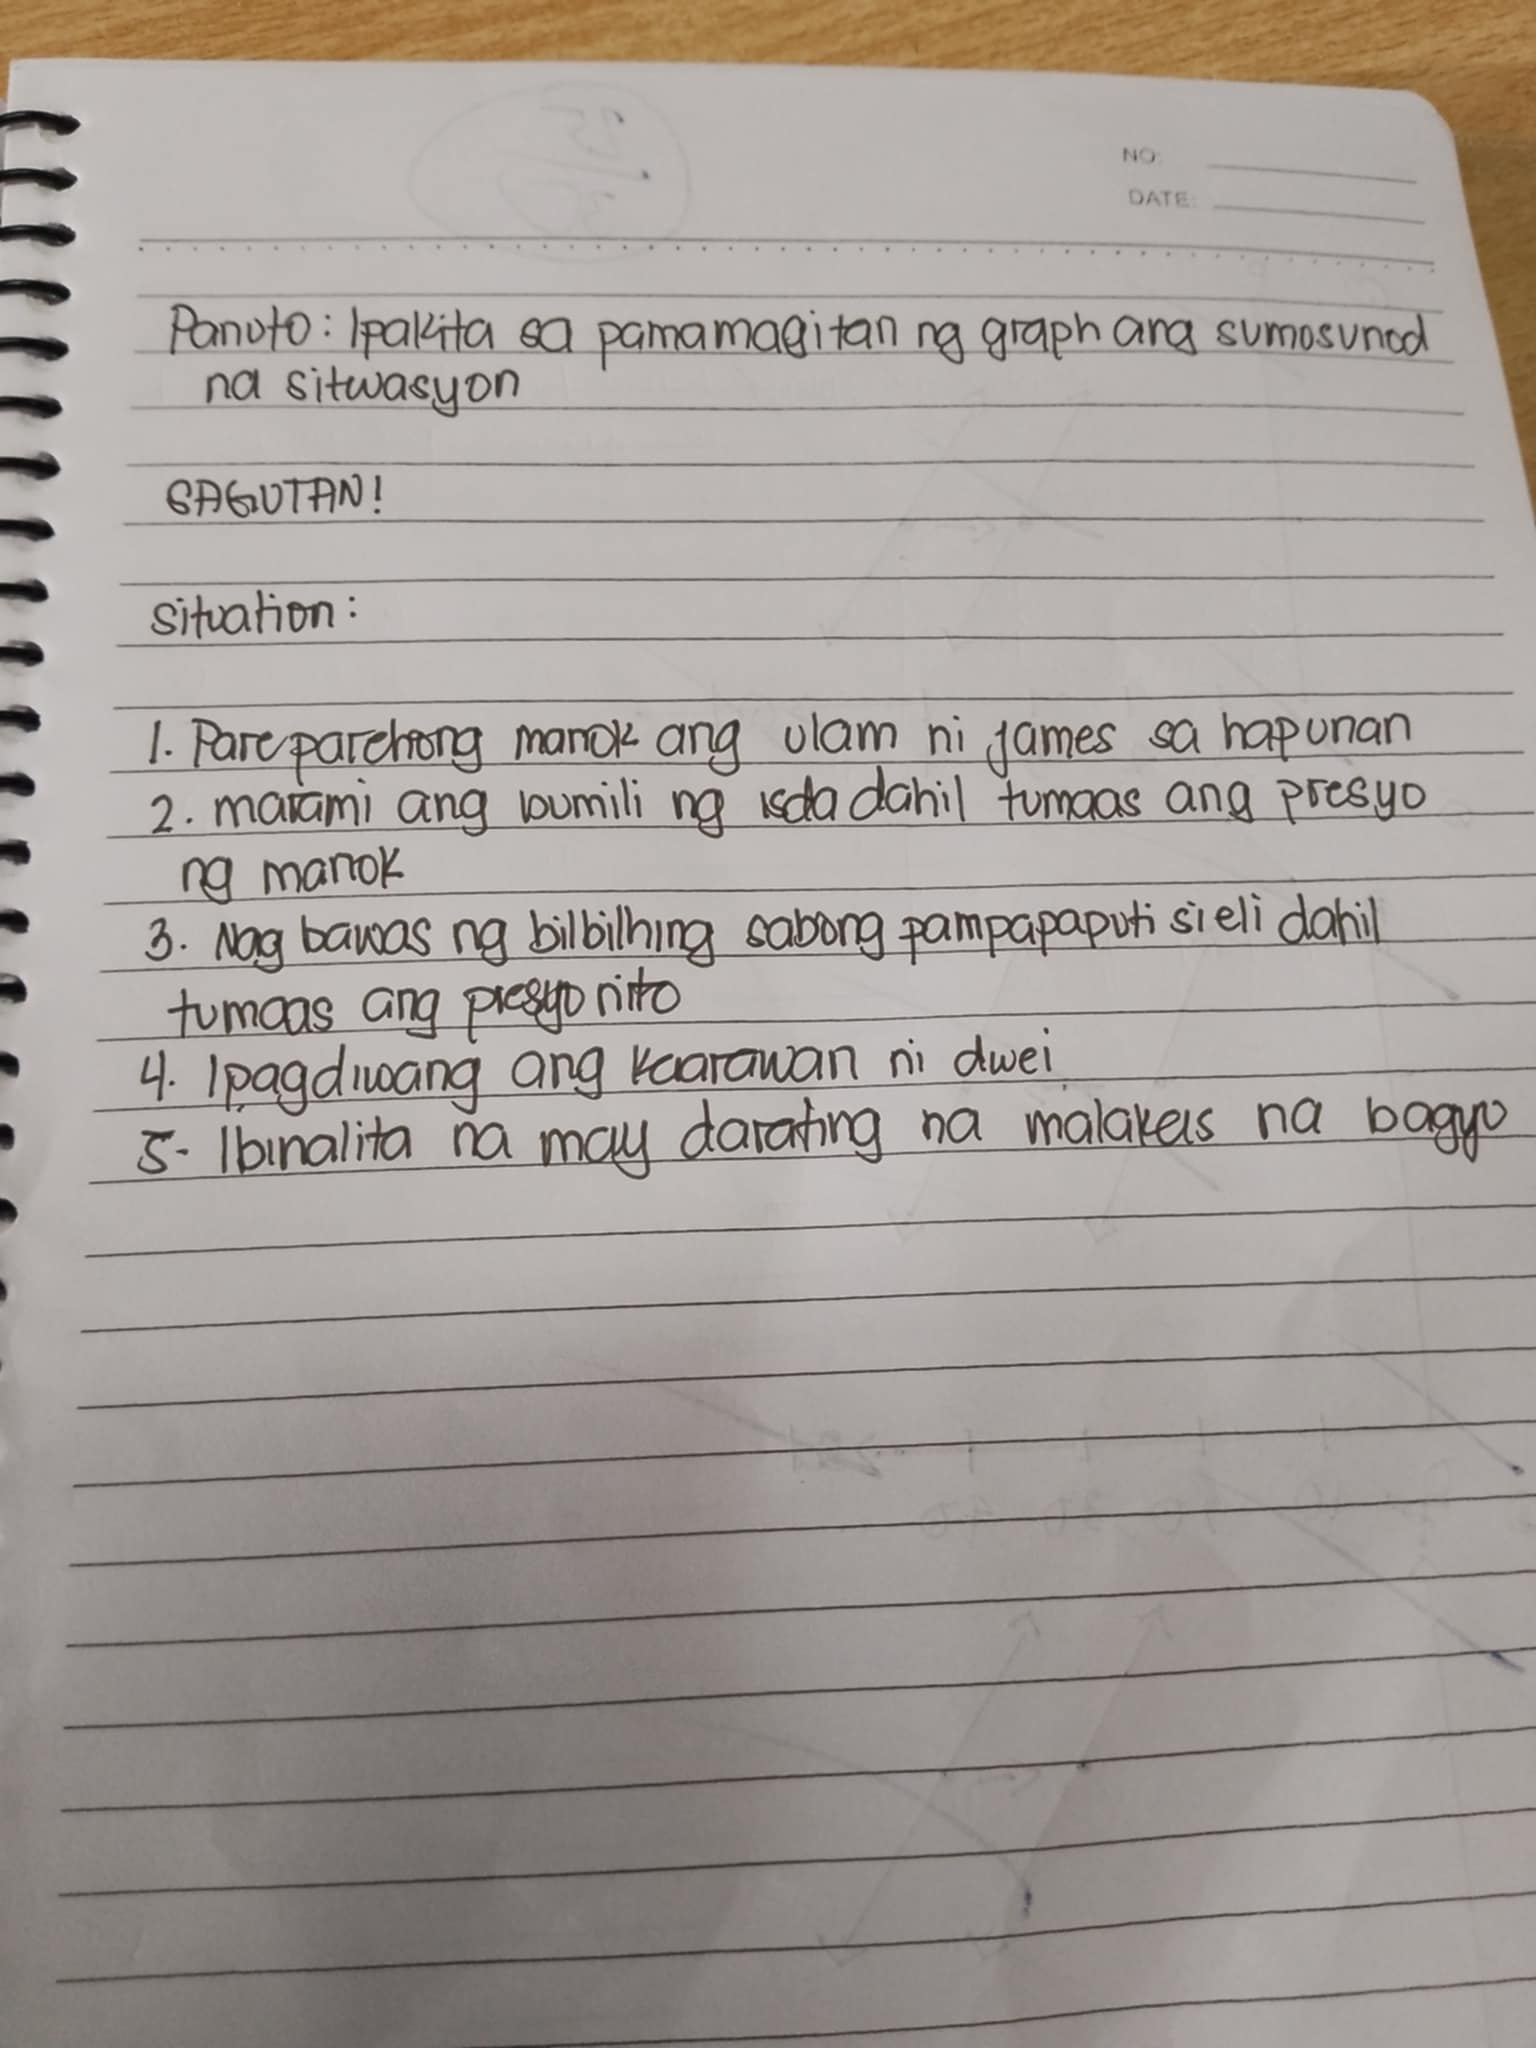 NO:
DATE:
Panuto: Ipakita sa pamamagitan ng graph ang sumosunod
na sitwasyon
SAGUTAN!
Situation:
1. Pare parehong manok ang ulam ni James sa hapunan
2. marami ang bumili ng isda dahil tumaas ang presyo
ng manok
3. Nag bawas ng bilbilhing sabong pampapaputi si eli dahil
tumaas ang presyo nito
4. Ipagdiwang ang kaarawan ni dwei
5. Ibinalita na may darating na malakas na bagyo